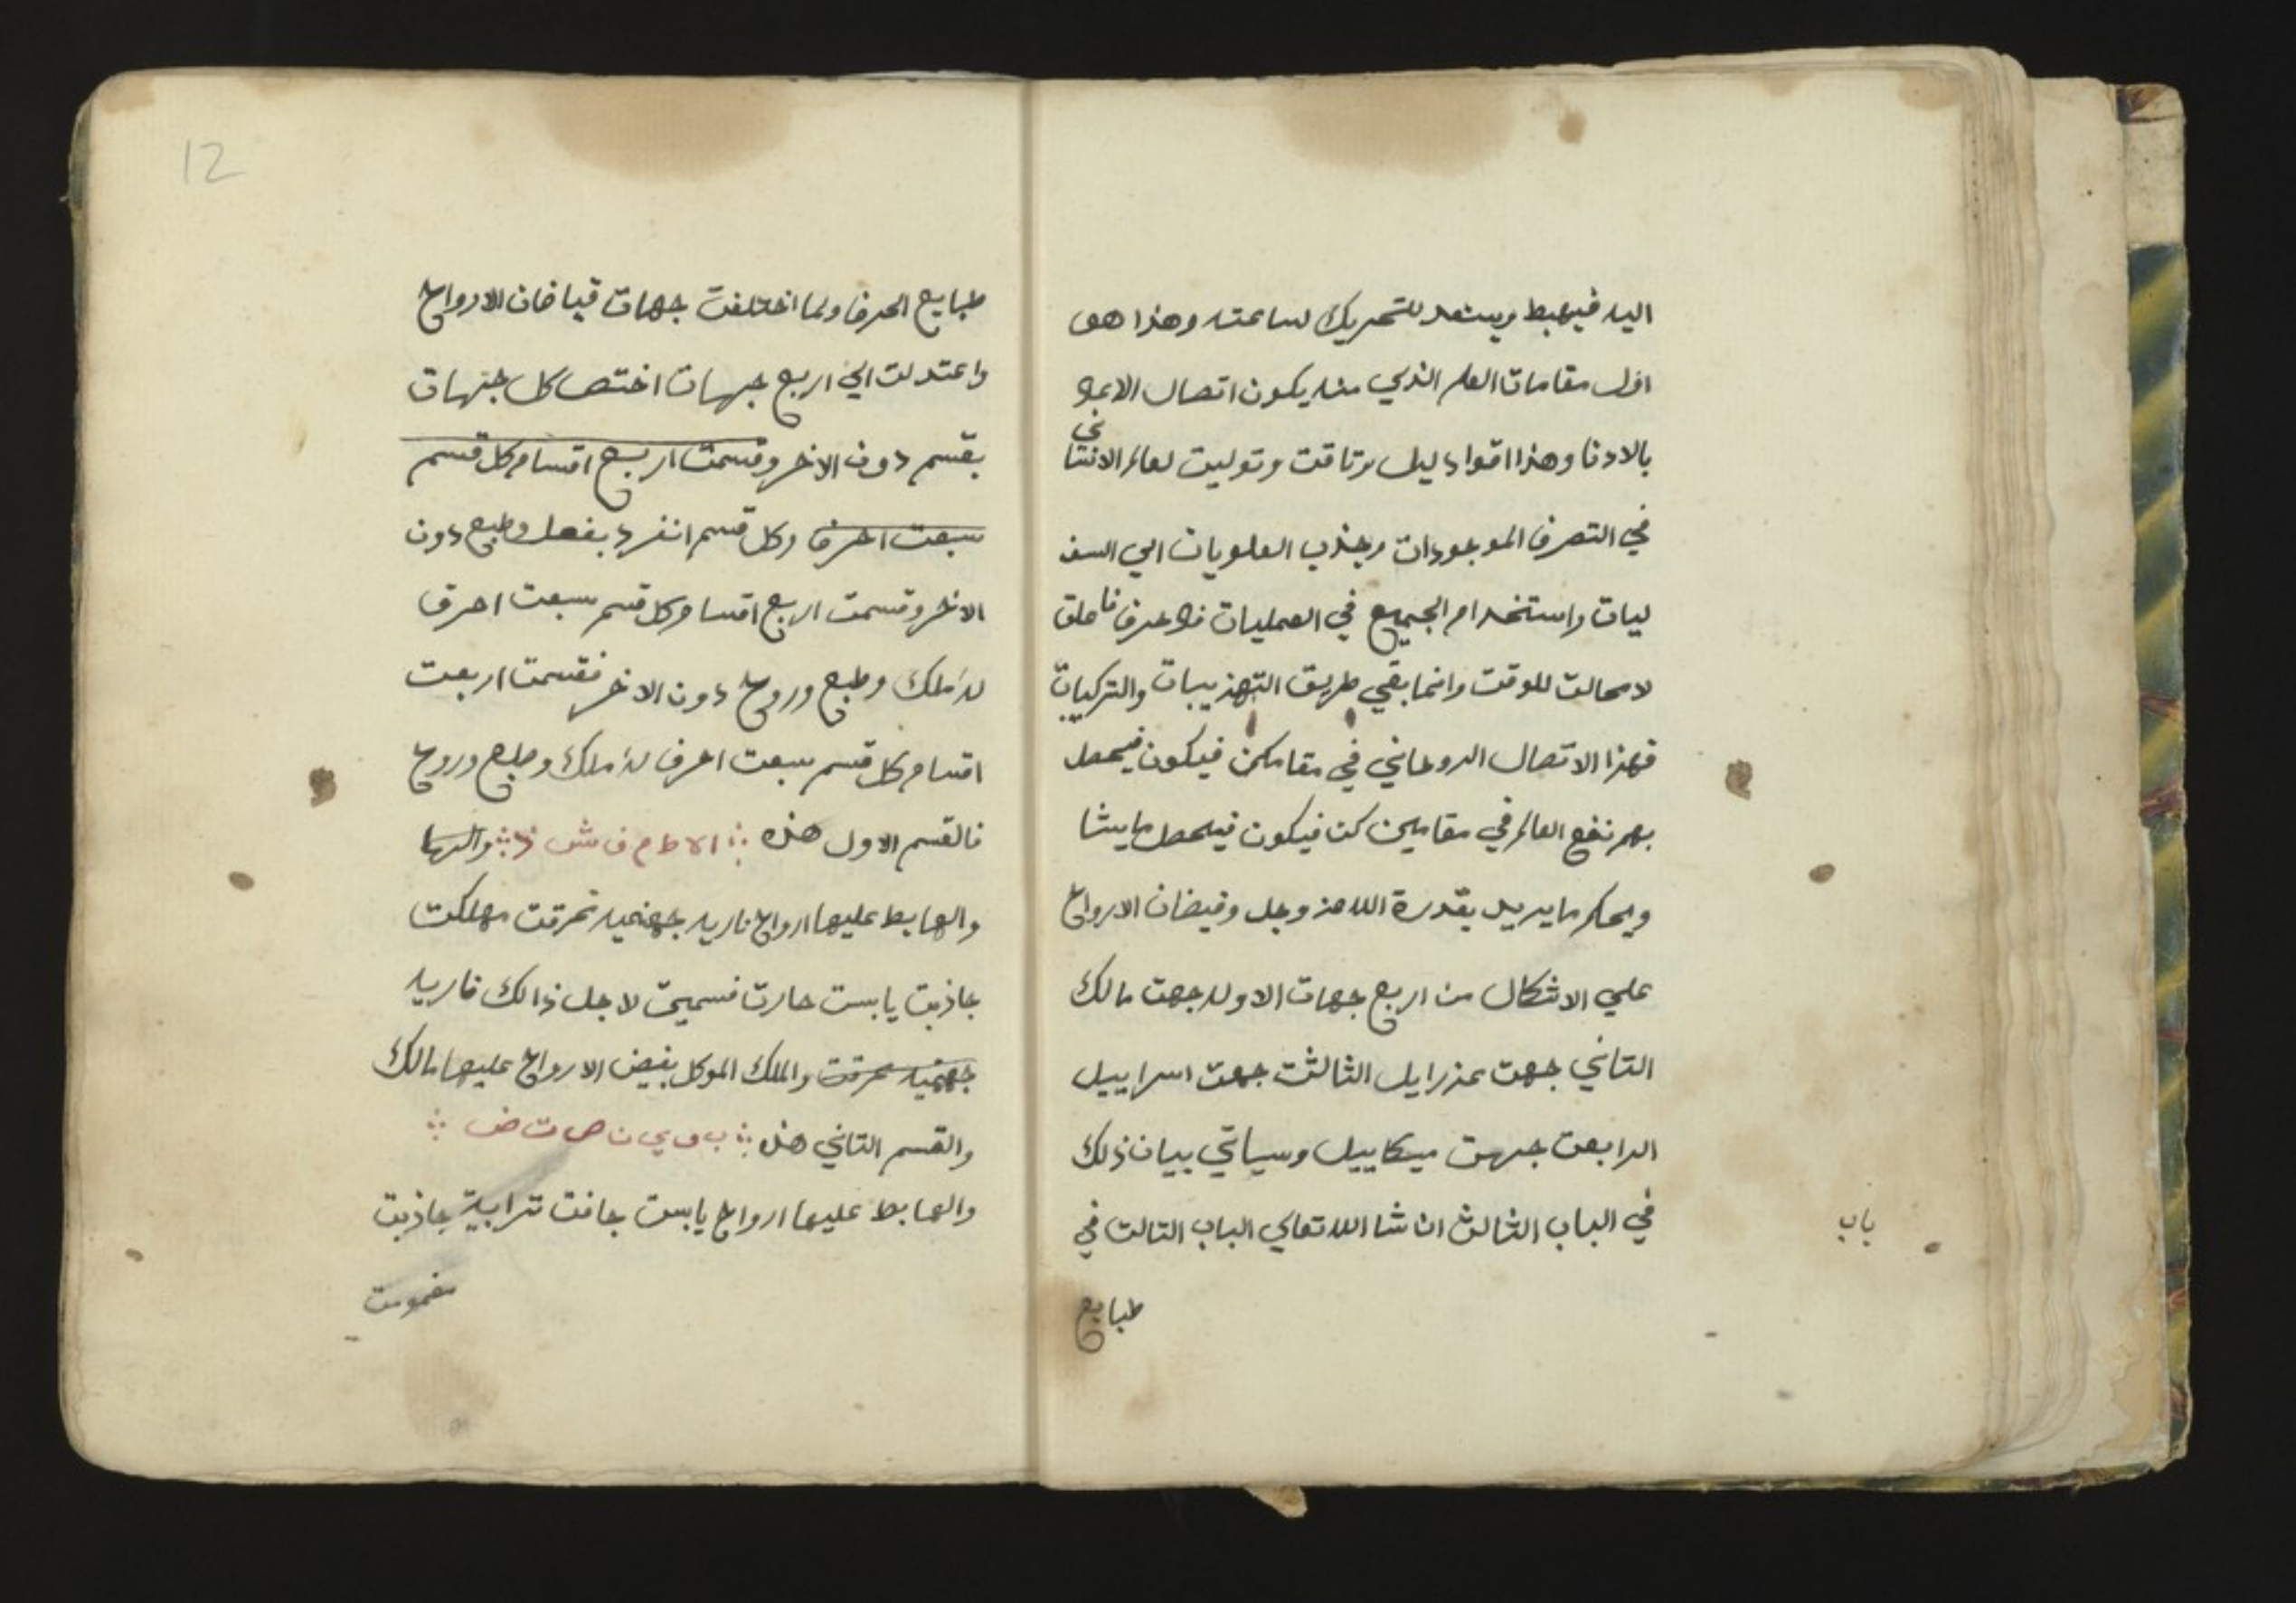 اليه فيهبط ويستعد للتحريك لساعته وهذا هو
اول مقامات العلم الذي منه يكون اتصال الاعلا
بالادنا وهذا اقوا دليل وتوليت لعالم الانسا
ني
في التصرف الموجودات وجذب العلويات الي السف
ليات واستخدام الجميع في العمليات
لا محالت للوقت وانما بقي طريق التهذيبات والتركيبات
فهذا الاتصال الروحاني في مقام كن فيكون فيحصل
بهم نفع العالم في مقامين كن فيكون فيحصل ما يشا
ويحكم ما يريد بقدرة الله عز وجل وفيضان الارواح
علي الاشكال من اربع جهات الاوله جهت مالك
التاني جهت عزرايل الثالثت جهت اسراييل
الرابعت جهت ميكاييل وسياتي بيان ذلك
في الباب الثالث ان شا الله تعالي الباب التالت في
باب
طبايع
12
طبايع الحرف ولما اختلفت جهات فياضان الارواح
واعتدلت الي اربع جهات اختص كل جهات
بقسم دون الاخر وقسمت اربع اقسام كل قسم
سبعت احرف وكل قسم انفرد بفعل وطبع دون
الاخر وقسمت اربع اقسام وكل قسم سبعت احرف
له ملك وطبع وروح دون الاخر فقسمت اربعت
اقسام كل قسم سبعت احرف له ملك وطبع وروح
فالقسم الاول هذه ا ه ط م ف ش ذ
والهابط عليها ارواح ناريه جهنميه محرقت مهلكت
جاذبت يابست حارت فسميت لاجل ذالك ناريه
جهنميه محرقت والملك الموكل بفيض الارواح عليها مالك
والقسم التاني هذه ب و ي ن ص ت ض
والهابط عليها ارواح يابست جافت ترابية جاذبت